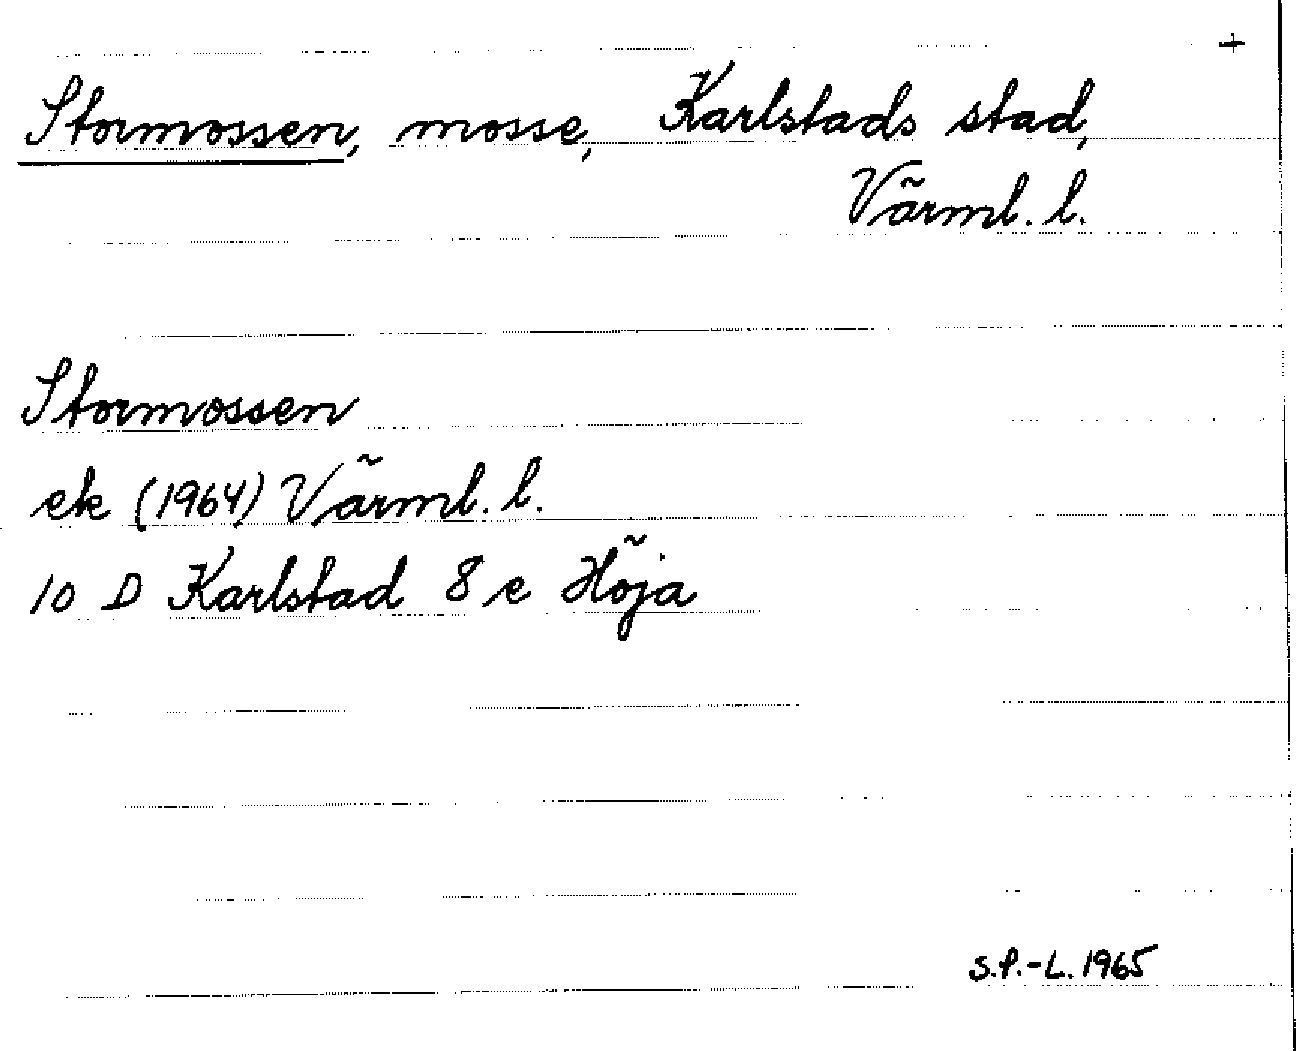 +
Stormossen, mosse, Karlstads stad,
Värml. l.
Stormossen
ek (1964) Värml. l.
10 D Karlstad 8 e Höja
S.P.-L. 1965